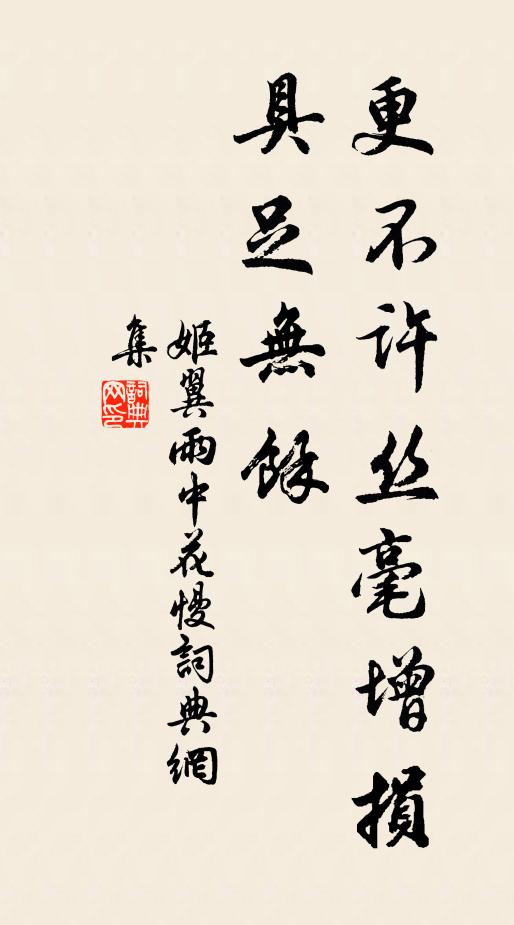 更不许丝毫增損
具足無餘
姬翼雨中花慢詞典網
集
詞典
网印